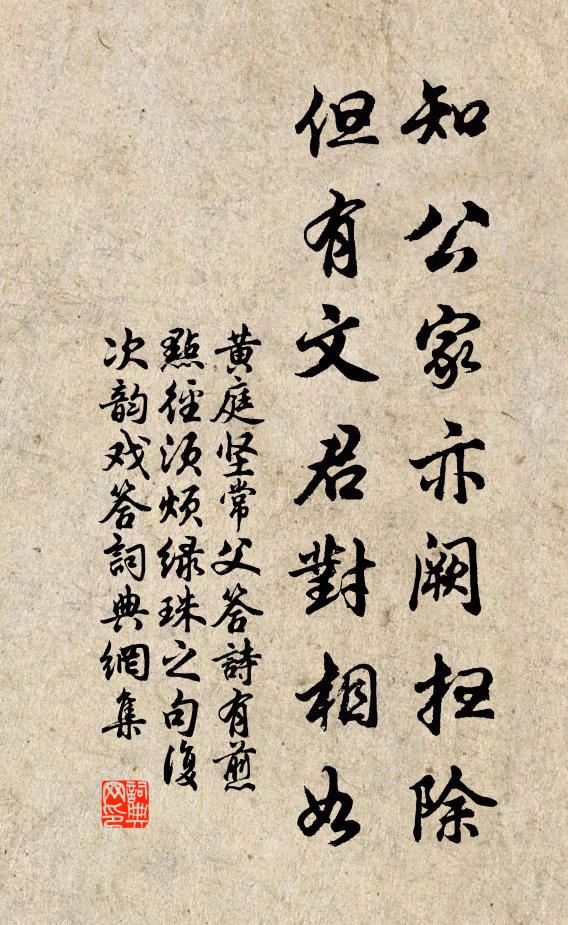 知公家亦阙扫除
但有文君對相如
黄庭坚常父答詩有煎
點徑須烦緑珠之句復
次韵戏答詞典網集
詞典网印